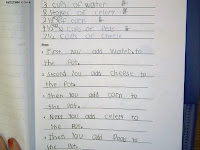 3 cups of water
8 stalks of celery
cups of corn
cups of Peas
cups of cheese
• First you add water to
the pot.
• Second you add cheese to
the pot.
• Then you add corn to
the pot.
• Next you add celery to
the pot.
• Then you add Peas to
the pot.